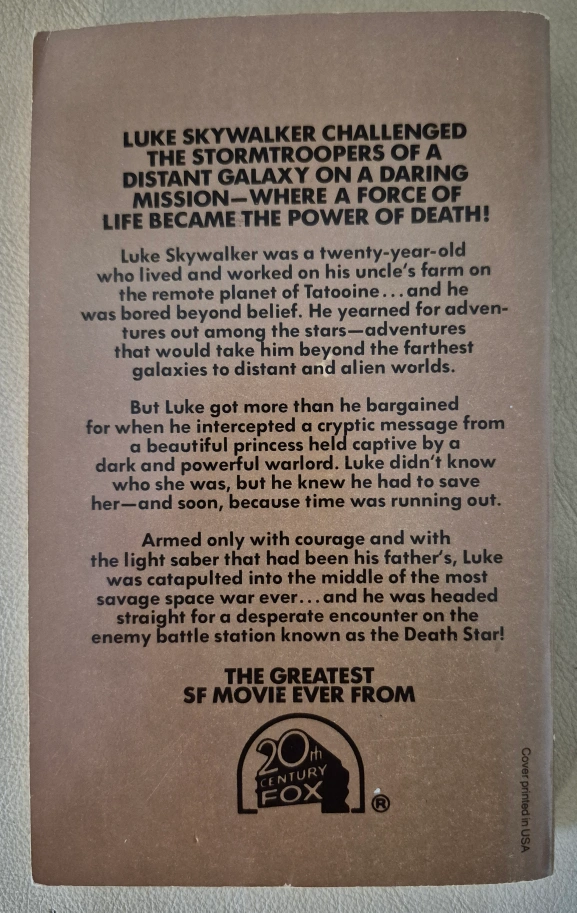 LUKE SKYWALKER CHALLENGED
THE STORMTROOPERS OF A
DISTANT GALAXY ON A DARING
MISSION—WHERE A FORCE OF
LIFE BECAME THE POWER OF DEATH!
Luke Skywalker was a twenty-year-old
who lived and worked on his uncle's farm on
the remote planet of Tatooine...and he
was bored beyond belief. He yearned for adven-
tures out among the stars—adventures
that would take him beyond the farthest
galaxies to distant and alien worlds.
But Luke got more than he bargained
for when he intercepted a cryptic message from
a beautiful princess held captive by a
dark and powerful warlord. Luke didn't know
who she was, but he knew he had to save
her—and soon, because time was running out.
Armed only with courage and with
the light saber that had been his father's, Luke
was catapulted into the middle of the most
savage space war ever...and he was headed
straight for a desperate encounter on the
enemy battle station known as the Death Star!
THE GREATEST
SF MOVIE EVER FROM
20th
CENTURY
FOX
®
Cover printed in USA